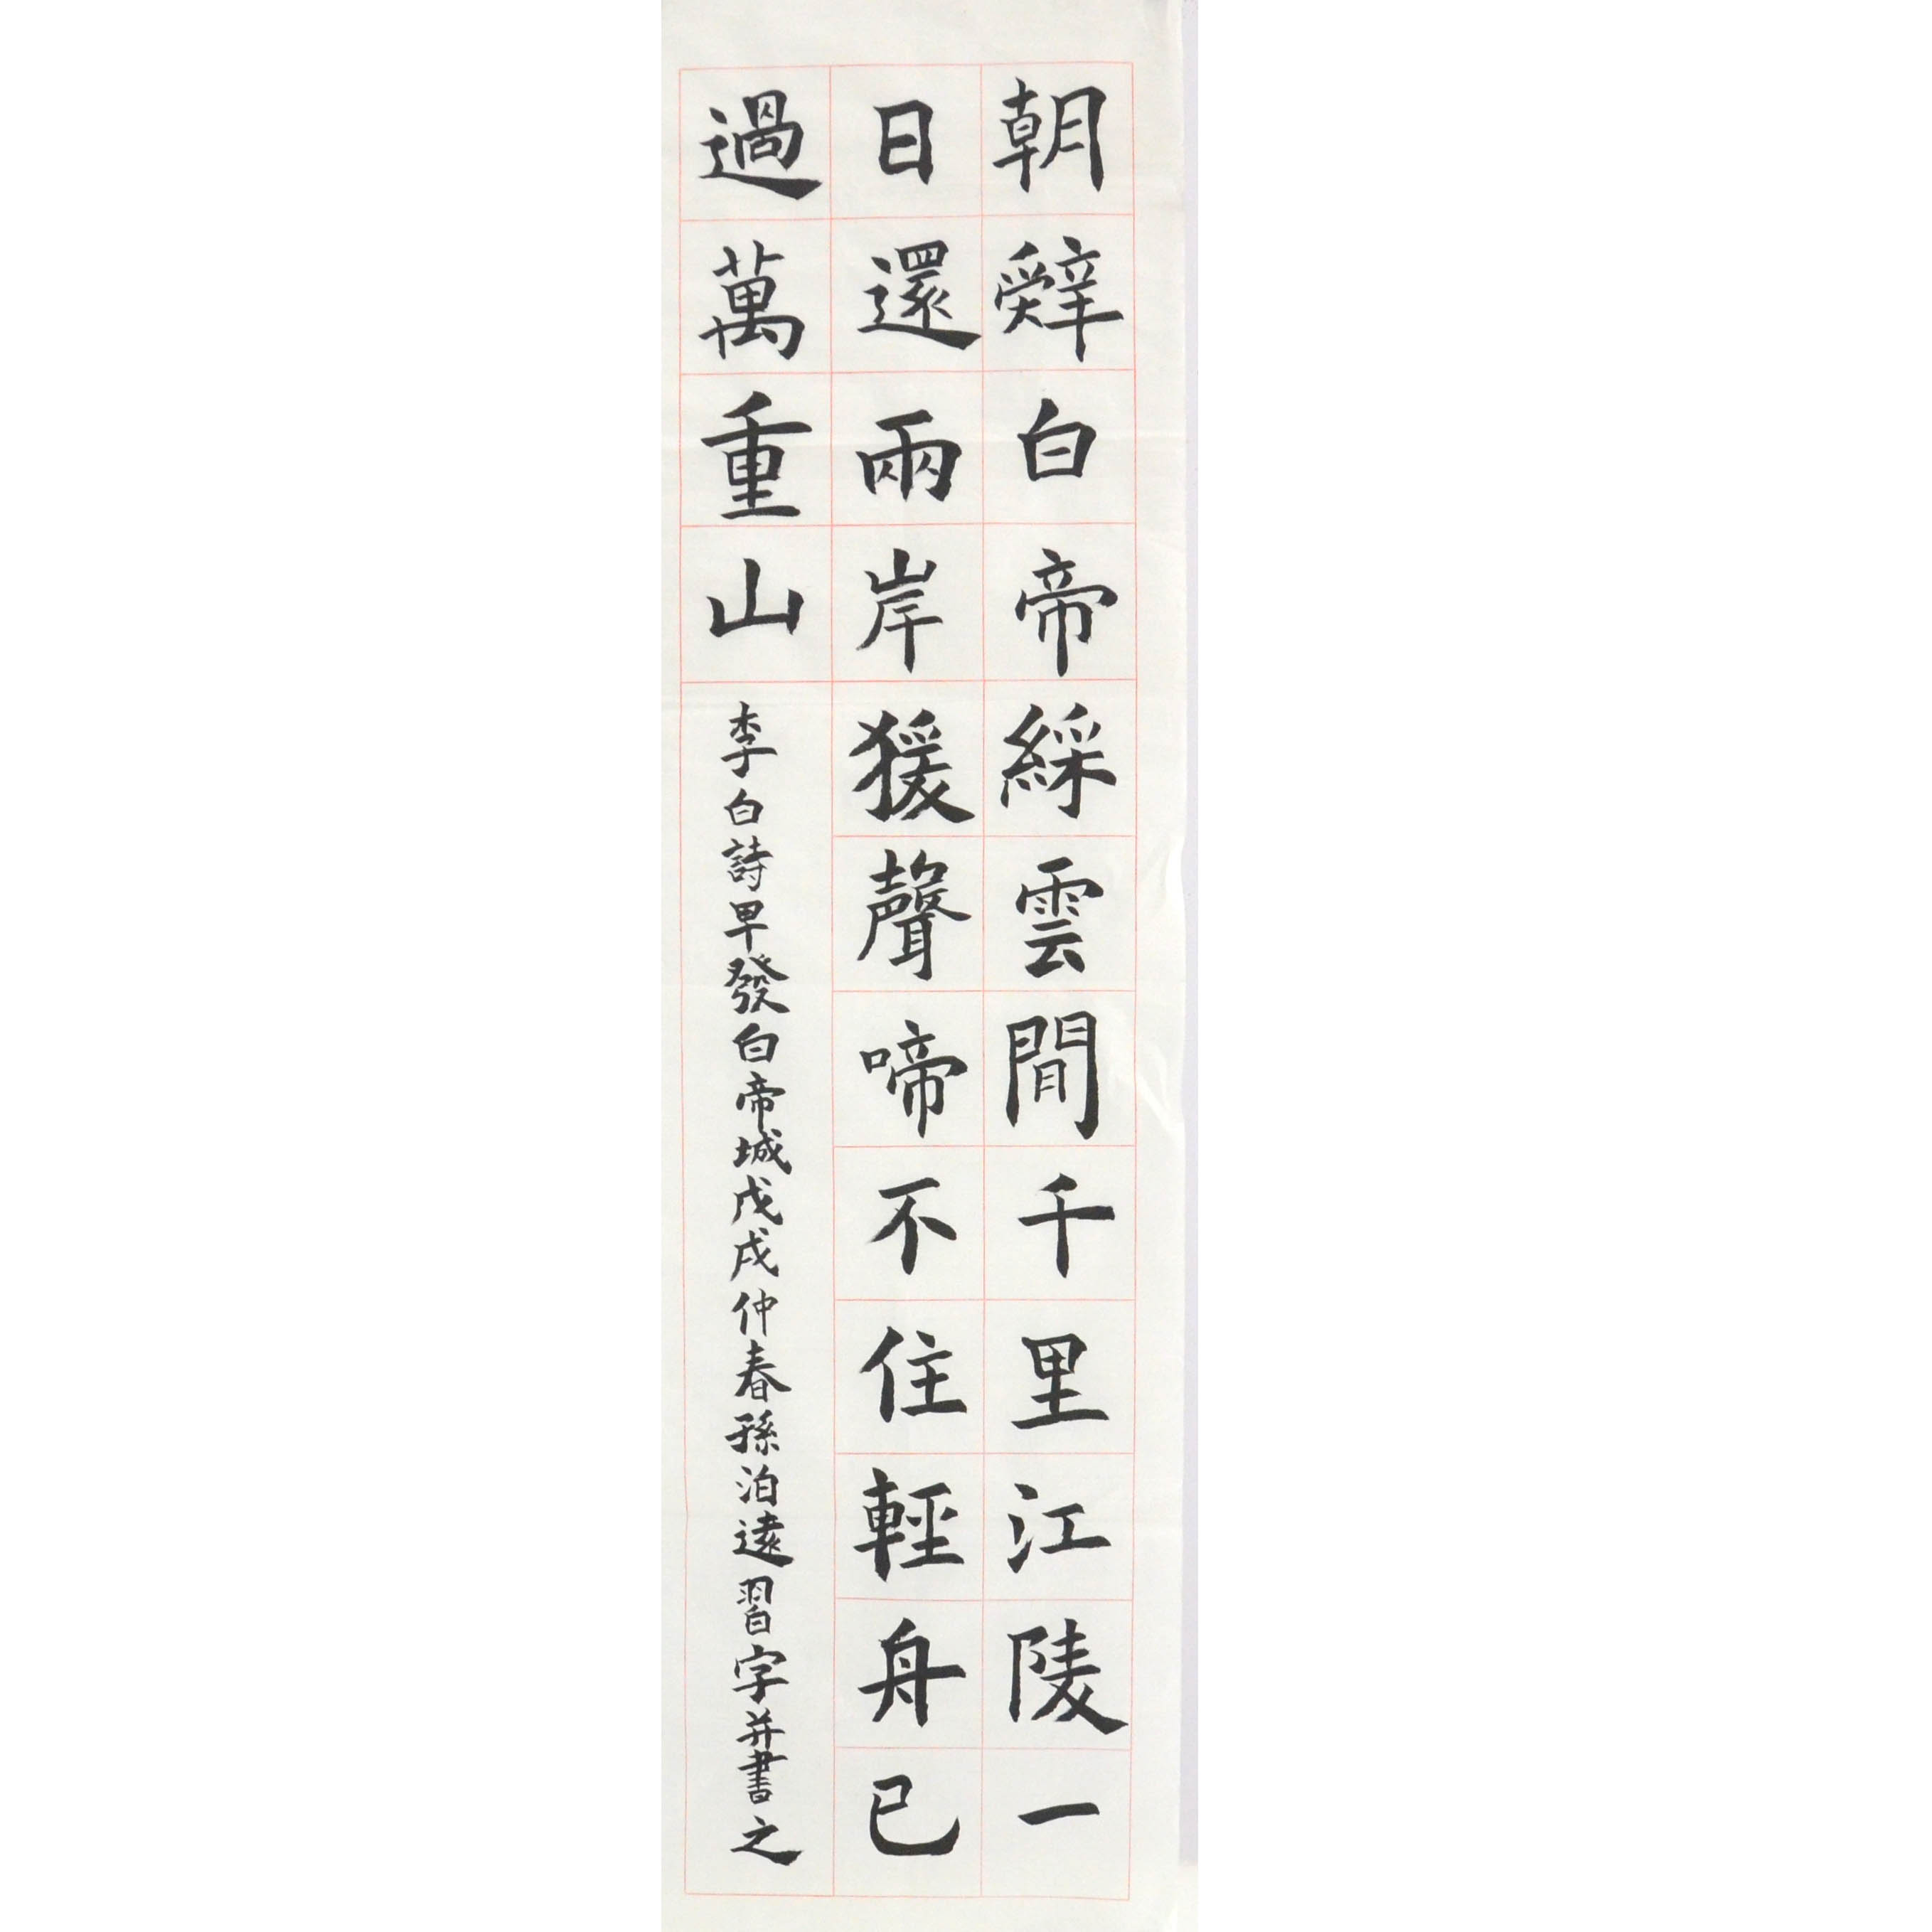 朝辤白帝綵雲閒千里江陵一
日還兩岸猨聲啼不住輕舟已
過萬重山
李白詩早發白帝城戊戌仲春孫泊遠習字并書之